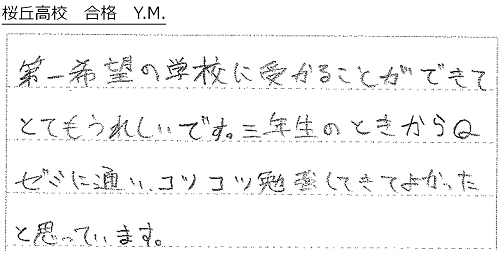 桜丘高校　合格　Y.M.
第一希望の学校に受かることができて
とてもうれしいです。三年生のときからQ
ゼミに通い、コツコツ勉強してきてよかった
と思っています。